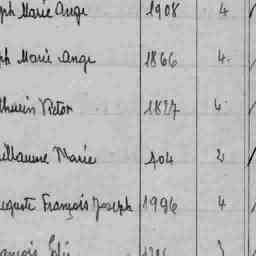 ph Marie Ange 1908 4
ph Marie Ange 1866 4
thurin Victor 1827 4
uillaume Marie 404 2
uguste François Joseph 1996 4
ançois